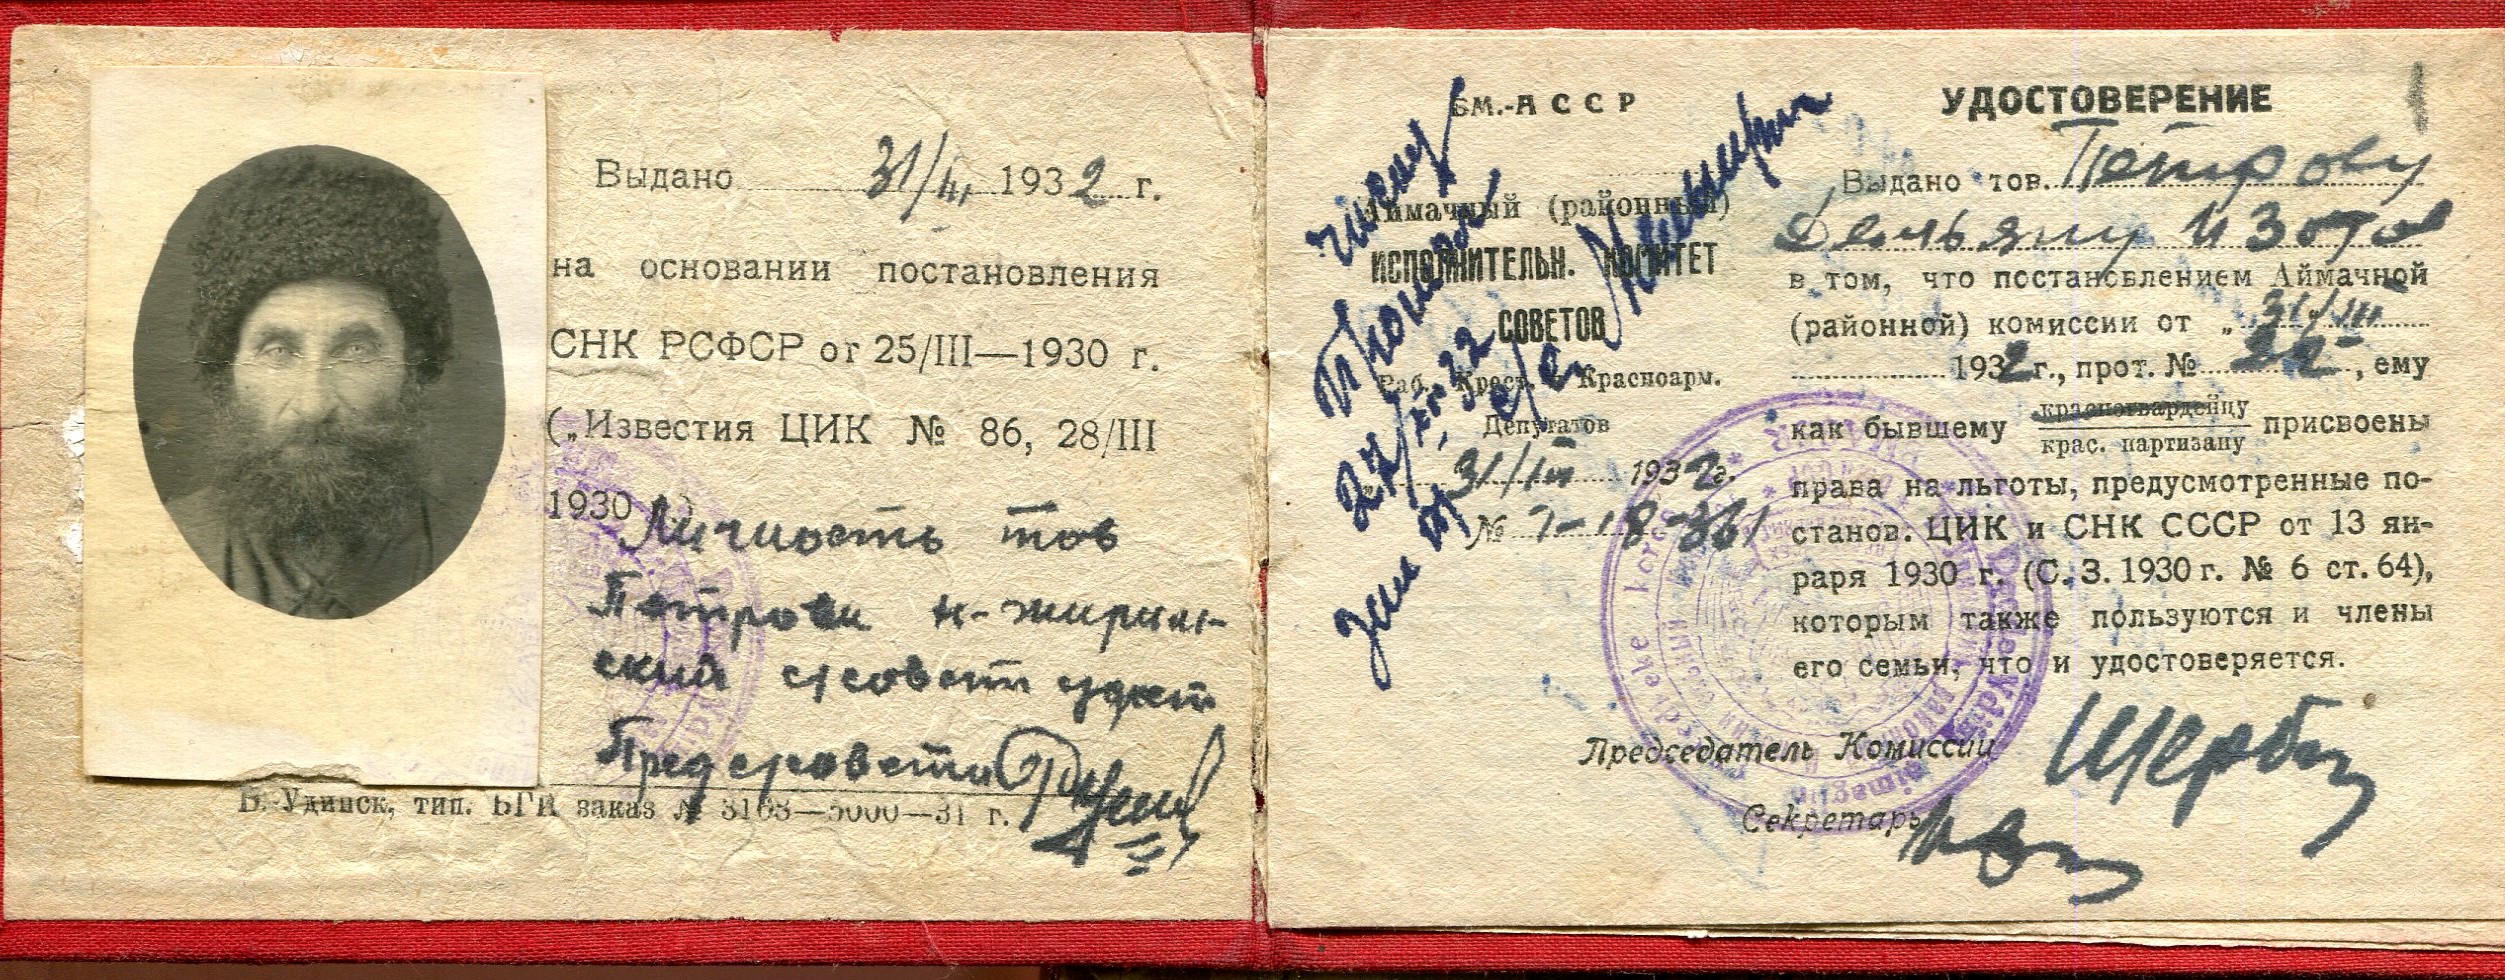 Выдано 31/III 1932 г.
на основании постановления
СНК РСФСР от 25/III—1930 г.
(„Известия ЦИК № 86, 28/III
1930
Личность тов
Петрова н-жирим-
ский с/совет удост
Пред с/совета
В.-Удинск, тип. БГИ заказ № 3163—5000—31 г.
БМ.-АССР
Аймачный (районный)
ИСПОЛНИТЕЛЬН. КОМИТЕТ
СОВЕТОВ
Раб., Крест. и Красноарм.
Депутатов
31/III 1932г.
№ 7-18-361
УДОСТОВЕРЕНИЕ
Выдано тов. Петрову
Демьяну Изотов
в том, что постановлением Аймачной
(районной) комиссии от „31/III
1932 г., прот. № 22, ему
как бывшему красногвардейцу
крас. партизану присвоены
права на льготы, предусмотренные по-
станов. ЦИК и СНК СССР от 13 ян-
раря 1930 г. (С. З. 1930 г. № 6 ст. 64),
которым также пользуются и члены
его семьи, что и удостоверяется.
Председатель Комиссии
Секретарь